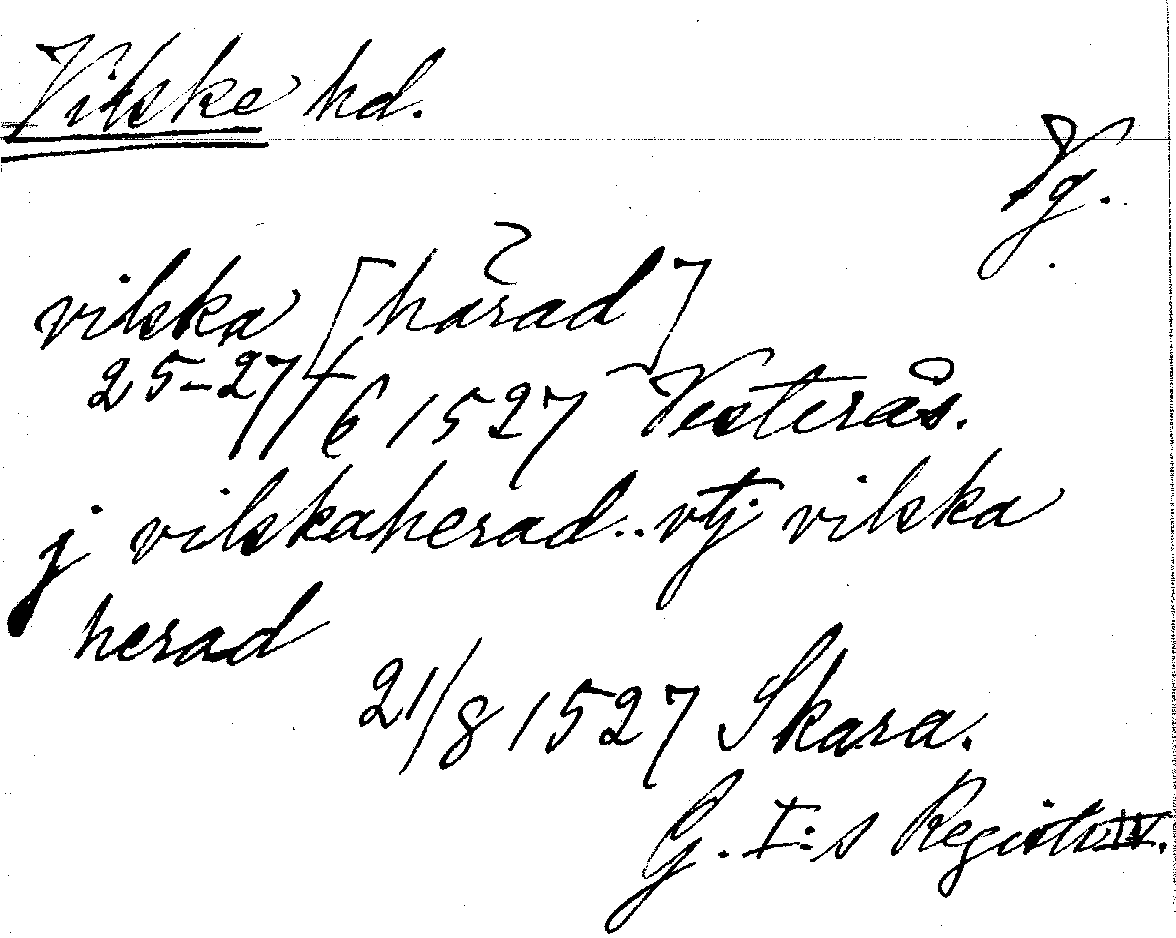 Vilske hd.
Vg.
vilska [härad]
25-27/6 1527 Vesterås.
j vilskaherad.. vtj vilska
herad
21/8 1527 Skara.
G. I:s Registr. IV.